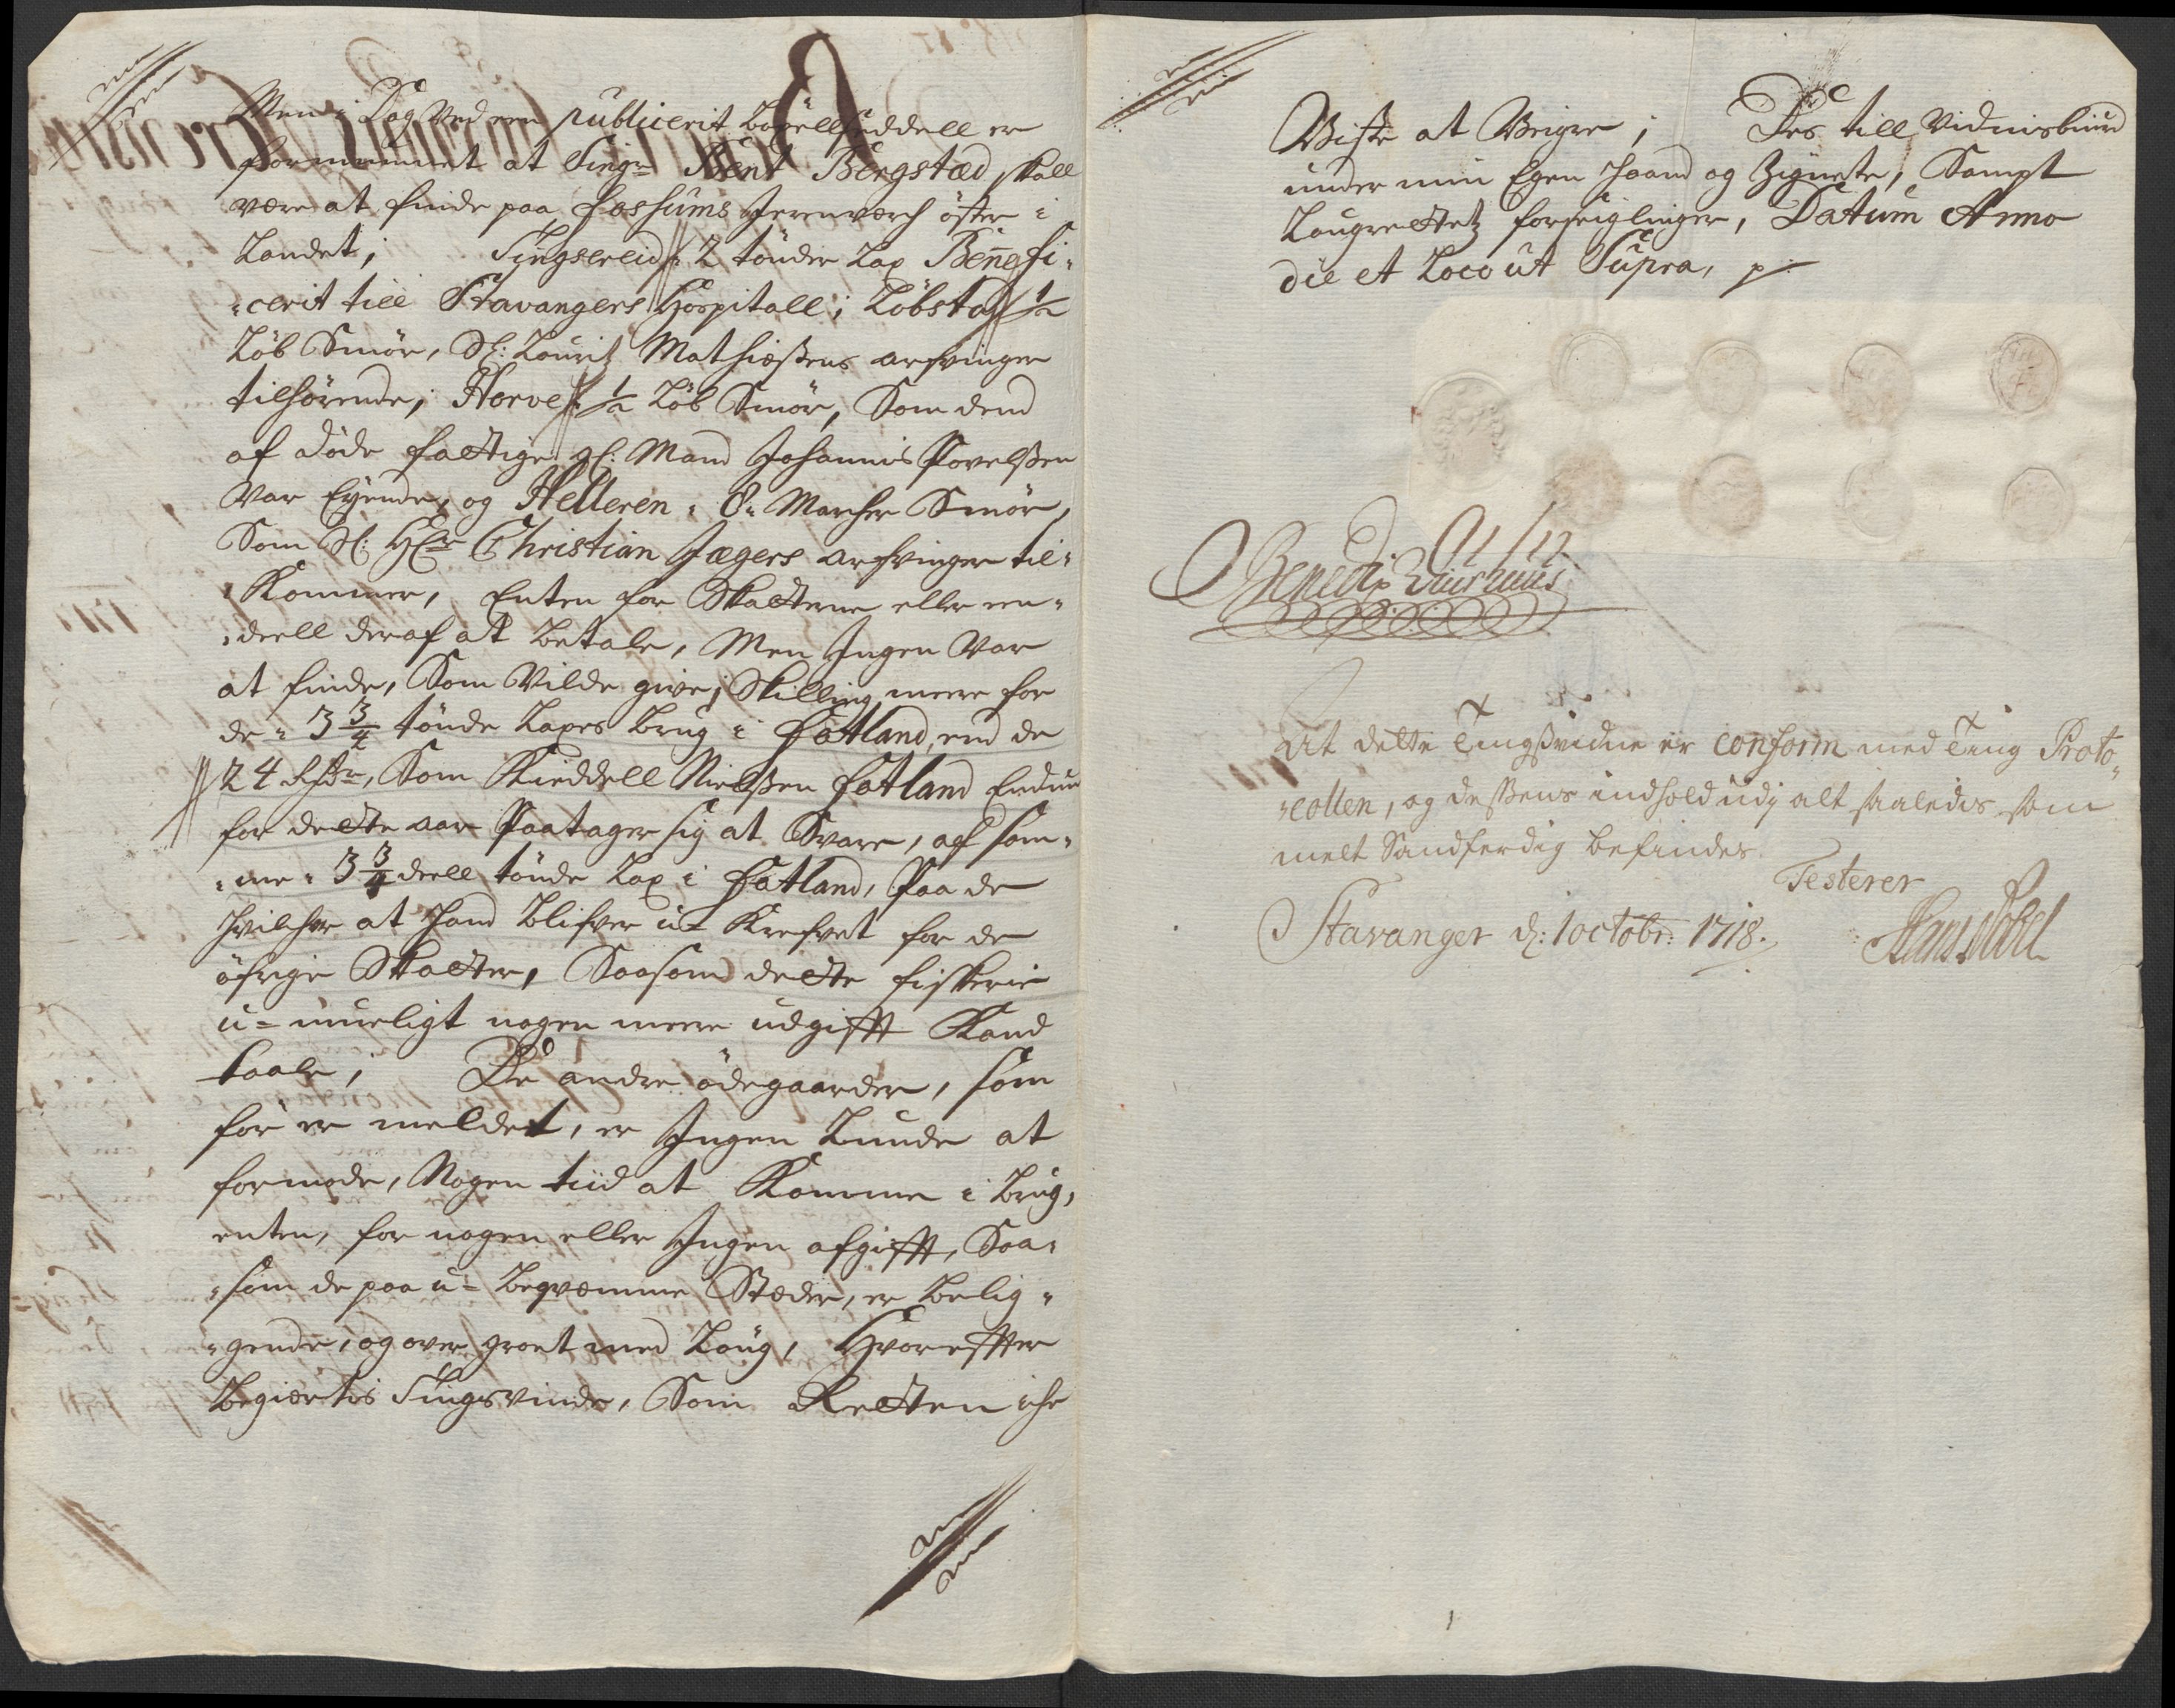 Men i Dag Ved een publicerit Lapellseddell er
fornummet at Sing:r Bent Bergstæd skall
være at finde paa Fossums Jerenværch öster i
Landet; Tingsereid 2 tönder Lax Benefi-
-cerit till Stavangers Hospitall; Löbstaf 1/2
Löb Smör, Sl: Lauritz Mathiessens arfvinger
tilhörende, Horve 1/2 Löb Smör, Som dend
af döde fattige gl: Mand Johannis Povelssen
Var Eyende, og Helleren 8 Marcher Smör,
Som Sl: Hr Christian Jægers arfvinger til-
Kommer, Enten for Skatterne eller een-
deell deraf at betale, Men Ingen Var
at finde, Som Vilde give 1 Skilling meere for
de 3 3/4 tönde Laxes brug i Fotland, end de
24 , Som Kieddell Nielssen Fotland Endnu
for dette aar Paatager sig at Svare, af sam-
me 3 3/4 deell tönde Lax i Fotland, Paa de
Hvilchor at Hand blifver u-Krefvet for de
öfrige Skatter, Saasom dette fiskerie
u-mueligt nogen meere udgifft Kand
taale; De andre ödegaarder, som
för er meldet, er Ingen Lunde at
formode, Nogen tiid at Komme i brug,
enten, for nogen eller Ingen afgifft, Saa-
som de paa u-beqvæmme Stæder, er belig-
gende, og over groet med Loug, Hvorefter
Begiertis Tingsvinde, Som Retten iche
Viste at Veigre; Des till Vidnisbiurd
under min Egen Haand og Zignete, Sampt
Laugrettetz forseiglinger, Datum Anno
die et Loco ut Supra, p:
Benedix Laurumus
At dette Tingsvidne er conform med Ting Proto-
-collen, og dessens indhold udj alt saaledes som
melt Sandferdig befindes
Testerer
Stavanger d: 1 octobr: 1718. Hans Nobel